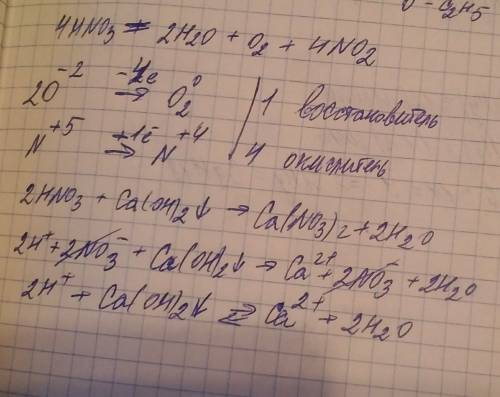 O - C₂H₅
4HNO₃ = 2H₂O + O₂ + 4NO₂
2O⁻² -4e → O₂⁰ | 1 восстановитель
N⁺⁵ +1ē → N⁺⁴ | 4 окислитель
2HNO₃ + Ca(OH)₂↓ → Ca(NO₃)₂ + 2H₂O
2H⁺ + 2NO₃⁻ + Ca(OH)₂↓ → Ca²⁺ + 2NO₃⁻ + 2H₂O
2H⁺ + Ca(OH)₂↓ ⇄ Ca²⁺ + 2H₂O